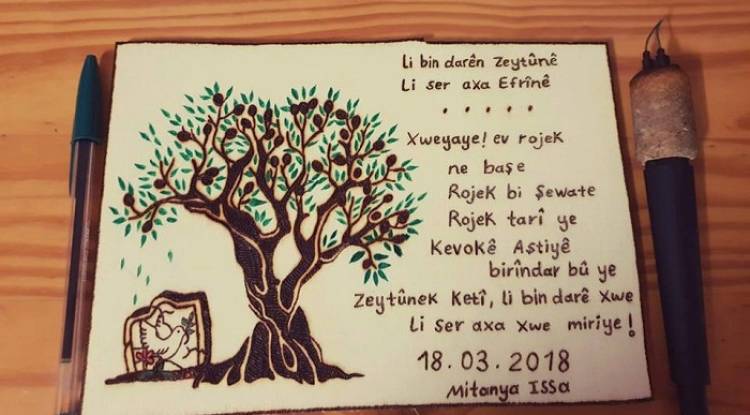 Li bin darên Zeytûnê
Li ser axa Efrînê
. . . . .
Xweyaye! ev rojek
ne başe
Rojek bi Şewate
Rojek tarî ye
Kevokê Aştiyê
birîndar bû ye
Zeytûnek Ketî, li bin darê xwe
Li ser axa xwe miriye!
18.03.2018
Mitanya Issa